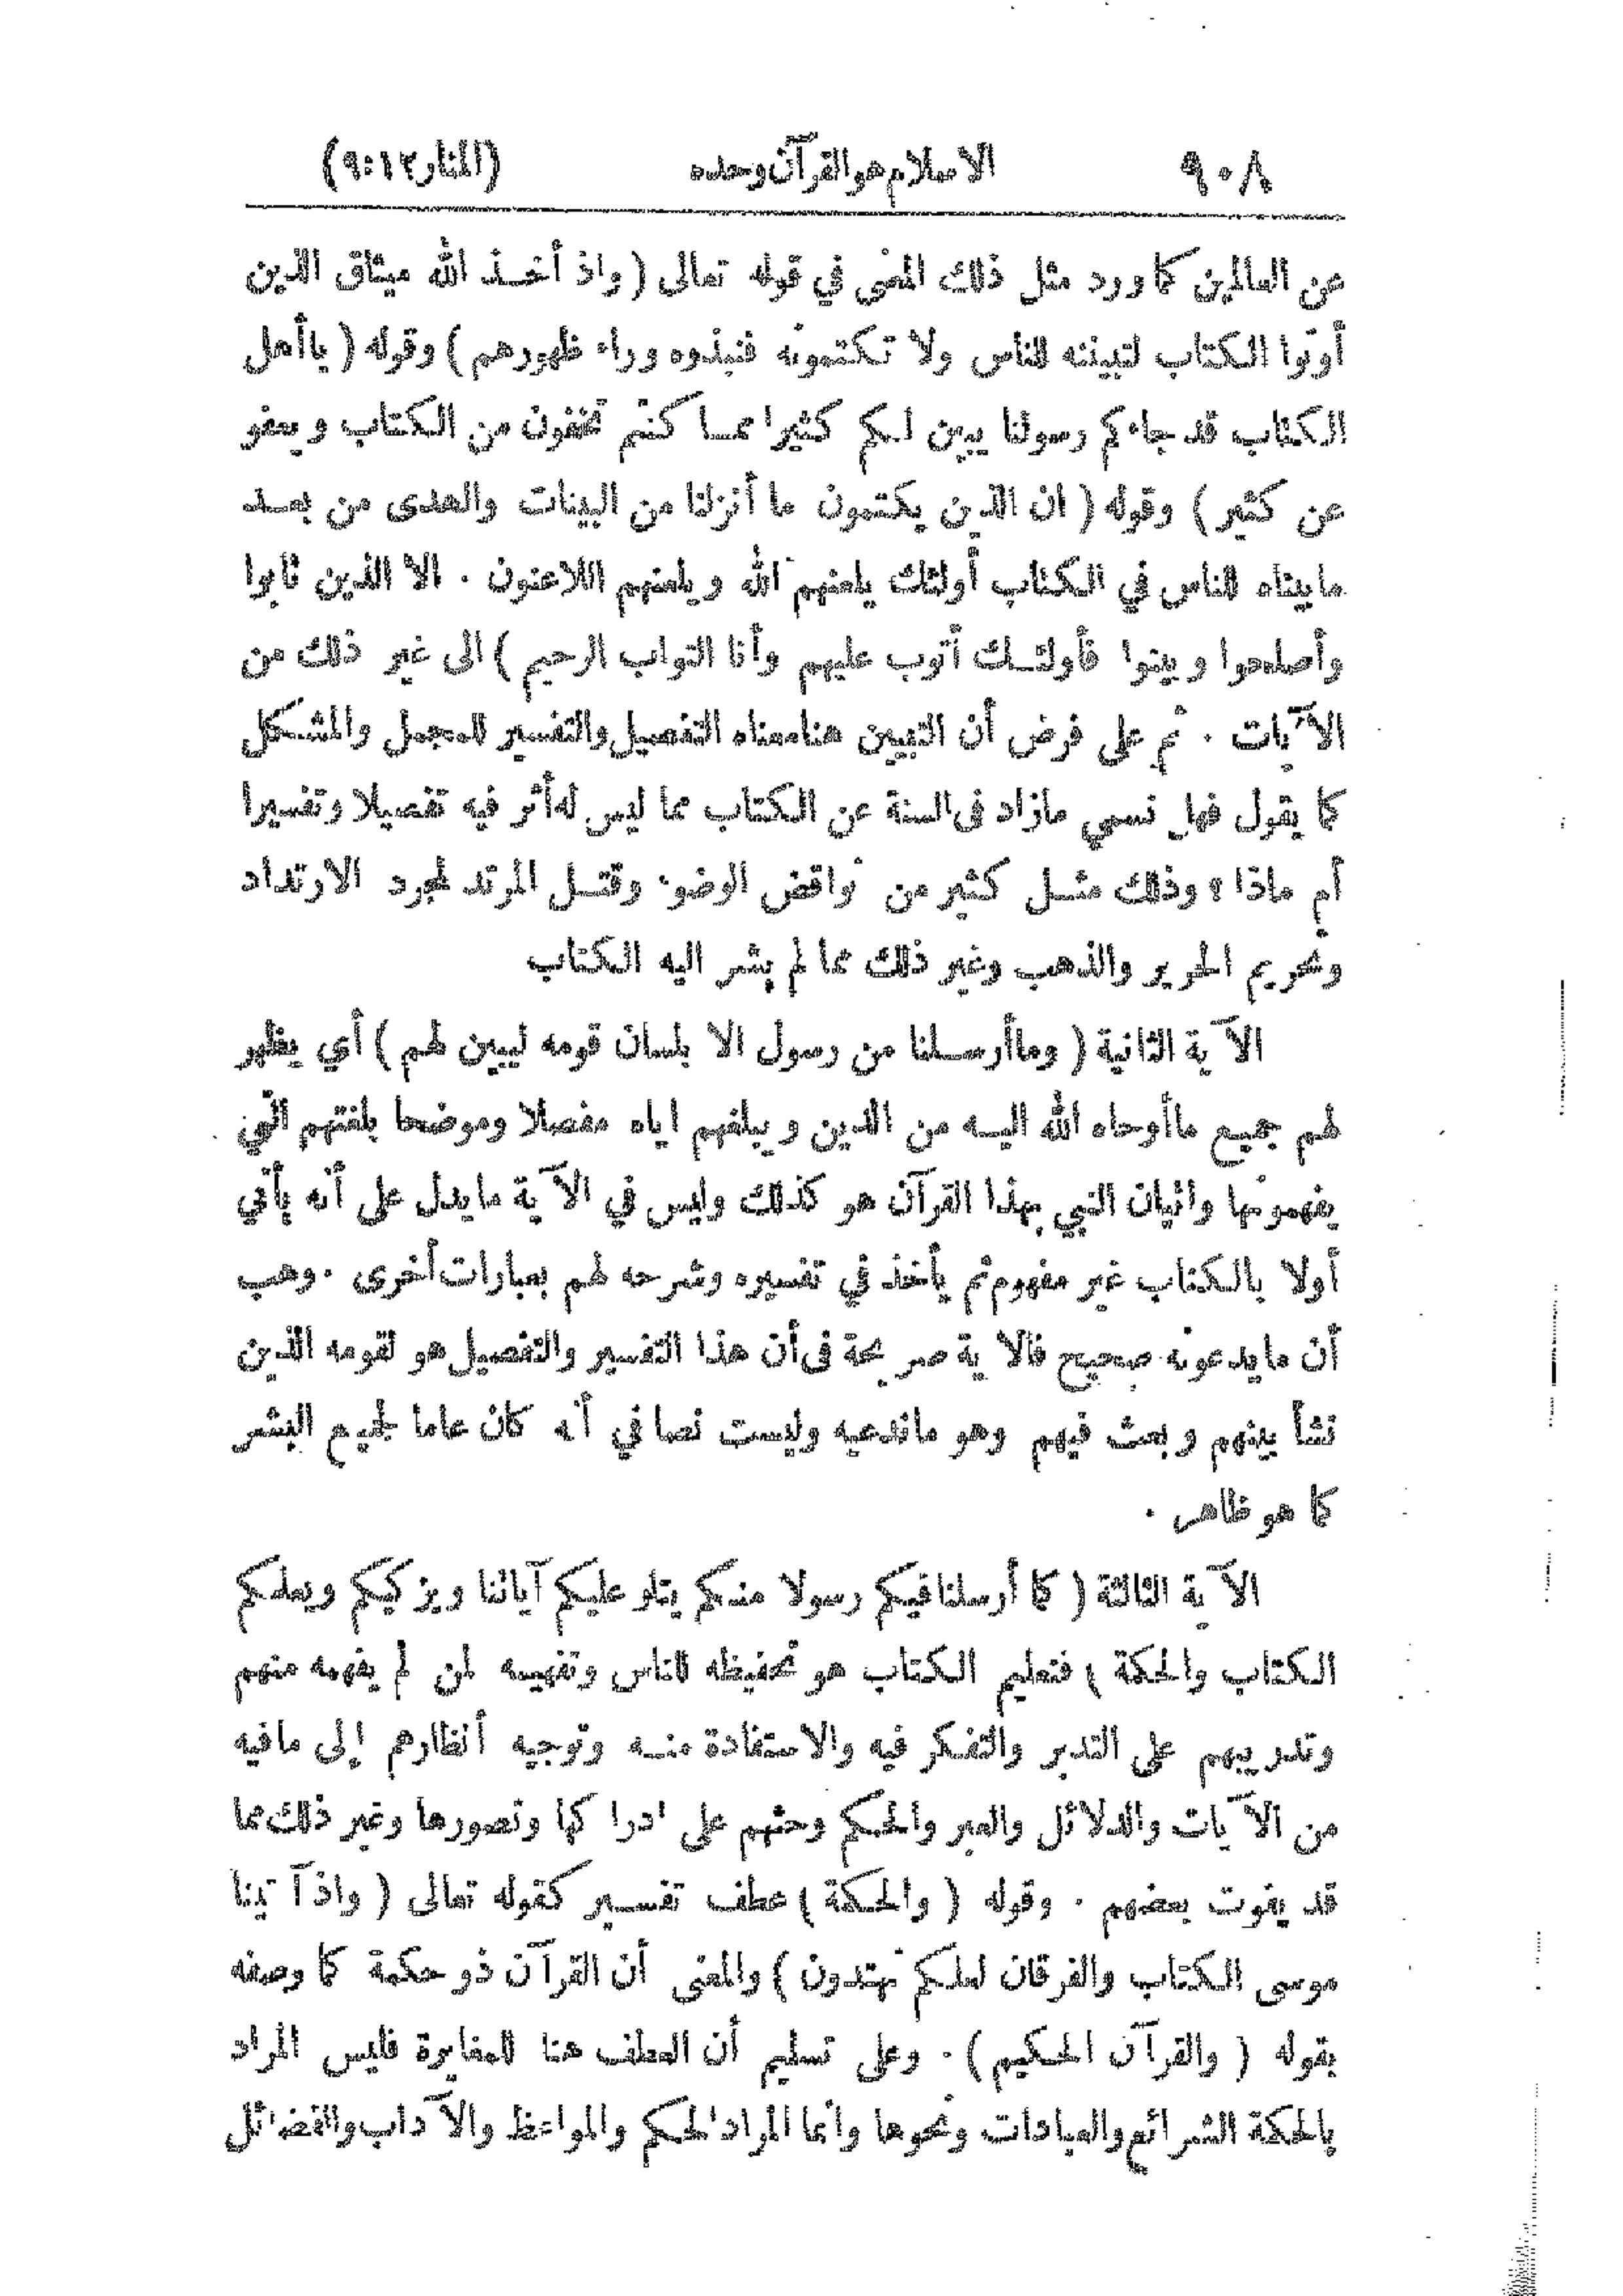 ٩٠٨ الاسلام هو القرآن وحده (المنار ١٢:٩)
عن العالمين كما ورد مثل ذلك المعنى في قوله تعالى ( واذ أخذ الله ميثاق الذين
أوتوا الكتاب لتبيننه للناس ولا تكتمونه فنبذوه وراء ظهورهم ) وقوله ( ياأهل
الكتاب قد جاءكم رسولنا يبين لكم كثيرا مما كنتم تخفون من الكتاب ويعفو
عن كثير ) وقوله ( ان الذين يكتمون ما أنزلنا من البينات والهدى من بعد
مابيناه للناس في الكتاب أولئك يلعنهم الله ويلعنهم اللاعنون . الا الذين تابوا
وأصلحوا وبينوا فأولئك أتوب عليهم وأنا التواب الرحيم ) الى غير ذلك من
الآيات . ثم على فرض أن التبيين هنامعناه التفصيل والتفسير للمجمل والمشكل
كما يقول فهل نسمي مازاد في السنة عن الكتاب مما ليس له أثر فيه تفصيلا وتفسيرا
أم ماذا ؟ وذلك مثل كثير من نواقض الوضوء وقتل المرتد لمجرد الارتداد
وتحريم الحرير والذهب وغير ذلك مما لم يشر اليه الكتاب
الآية الثانية ( وماأرسلنا من رسول الا بلسان قومه ليبين لهم ) أي يظهر
لهم جميع ماأوحاه الله اليه من الدين ويبلغهم اياه مفصلا وموضحا بلغتهم التي
يفهمونها واتيان النبي بهذا القرآن هو كذلك وليس في الآية مايدل على أنه يأتي
أولا بالكتاب غير مفهوم ثم يأخذ في تفسيره وشرحه لهم بعبارات أخرى . وهب
أن مايدعونه صحيح فالآية صريحة في أن هذا التفسير والتفصيل هو لقومه الذين
نشأ بينهم وبعث فيهم وهو ماندعيه وليست نصا في أنه كان عاما لجميع البشر
كما هو ظاهر .
الآية الثالثة ( كما أرسلنا فيكم رسولا منكم يتلو عليكم آياتنا ويزكيكم ويعلمكم
الكتاب والحكمة ) فتعليم الكتاب هو تحفيظه للناس وتفهيمه لمن لم يفهمه منهم
وتدريبهم على التدبر والتفكر فيه والاستفادة منه وتوجيه أنظارهم إلى مافيه
من الآيات والدلائل والعبر والحكم وحثهم على ادراكها وتصورها وغير ذلك مما
قد يفوت بعضهم . وقوله ( والحكمة ) عطف تفسير كقوله تعالى ( واذ آتينا
موسى الكتاب والفرقان لعلكم تهتدون ) والمعنى أن القرآن ذو حكمة كما وصفه
بقوله ( والقرآن الحكيم ) . وعلى تسليم أن العطف هنا للمغايرة فليس المراد
بالحكمة الشرائع والعبادات ونحوها وانما المراد الحكم والمواعظ والآداب والفضائل